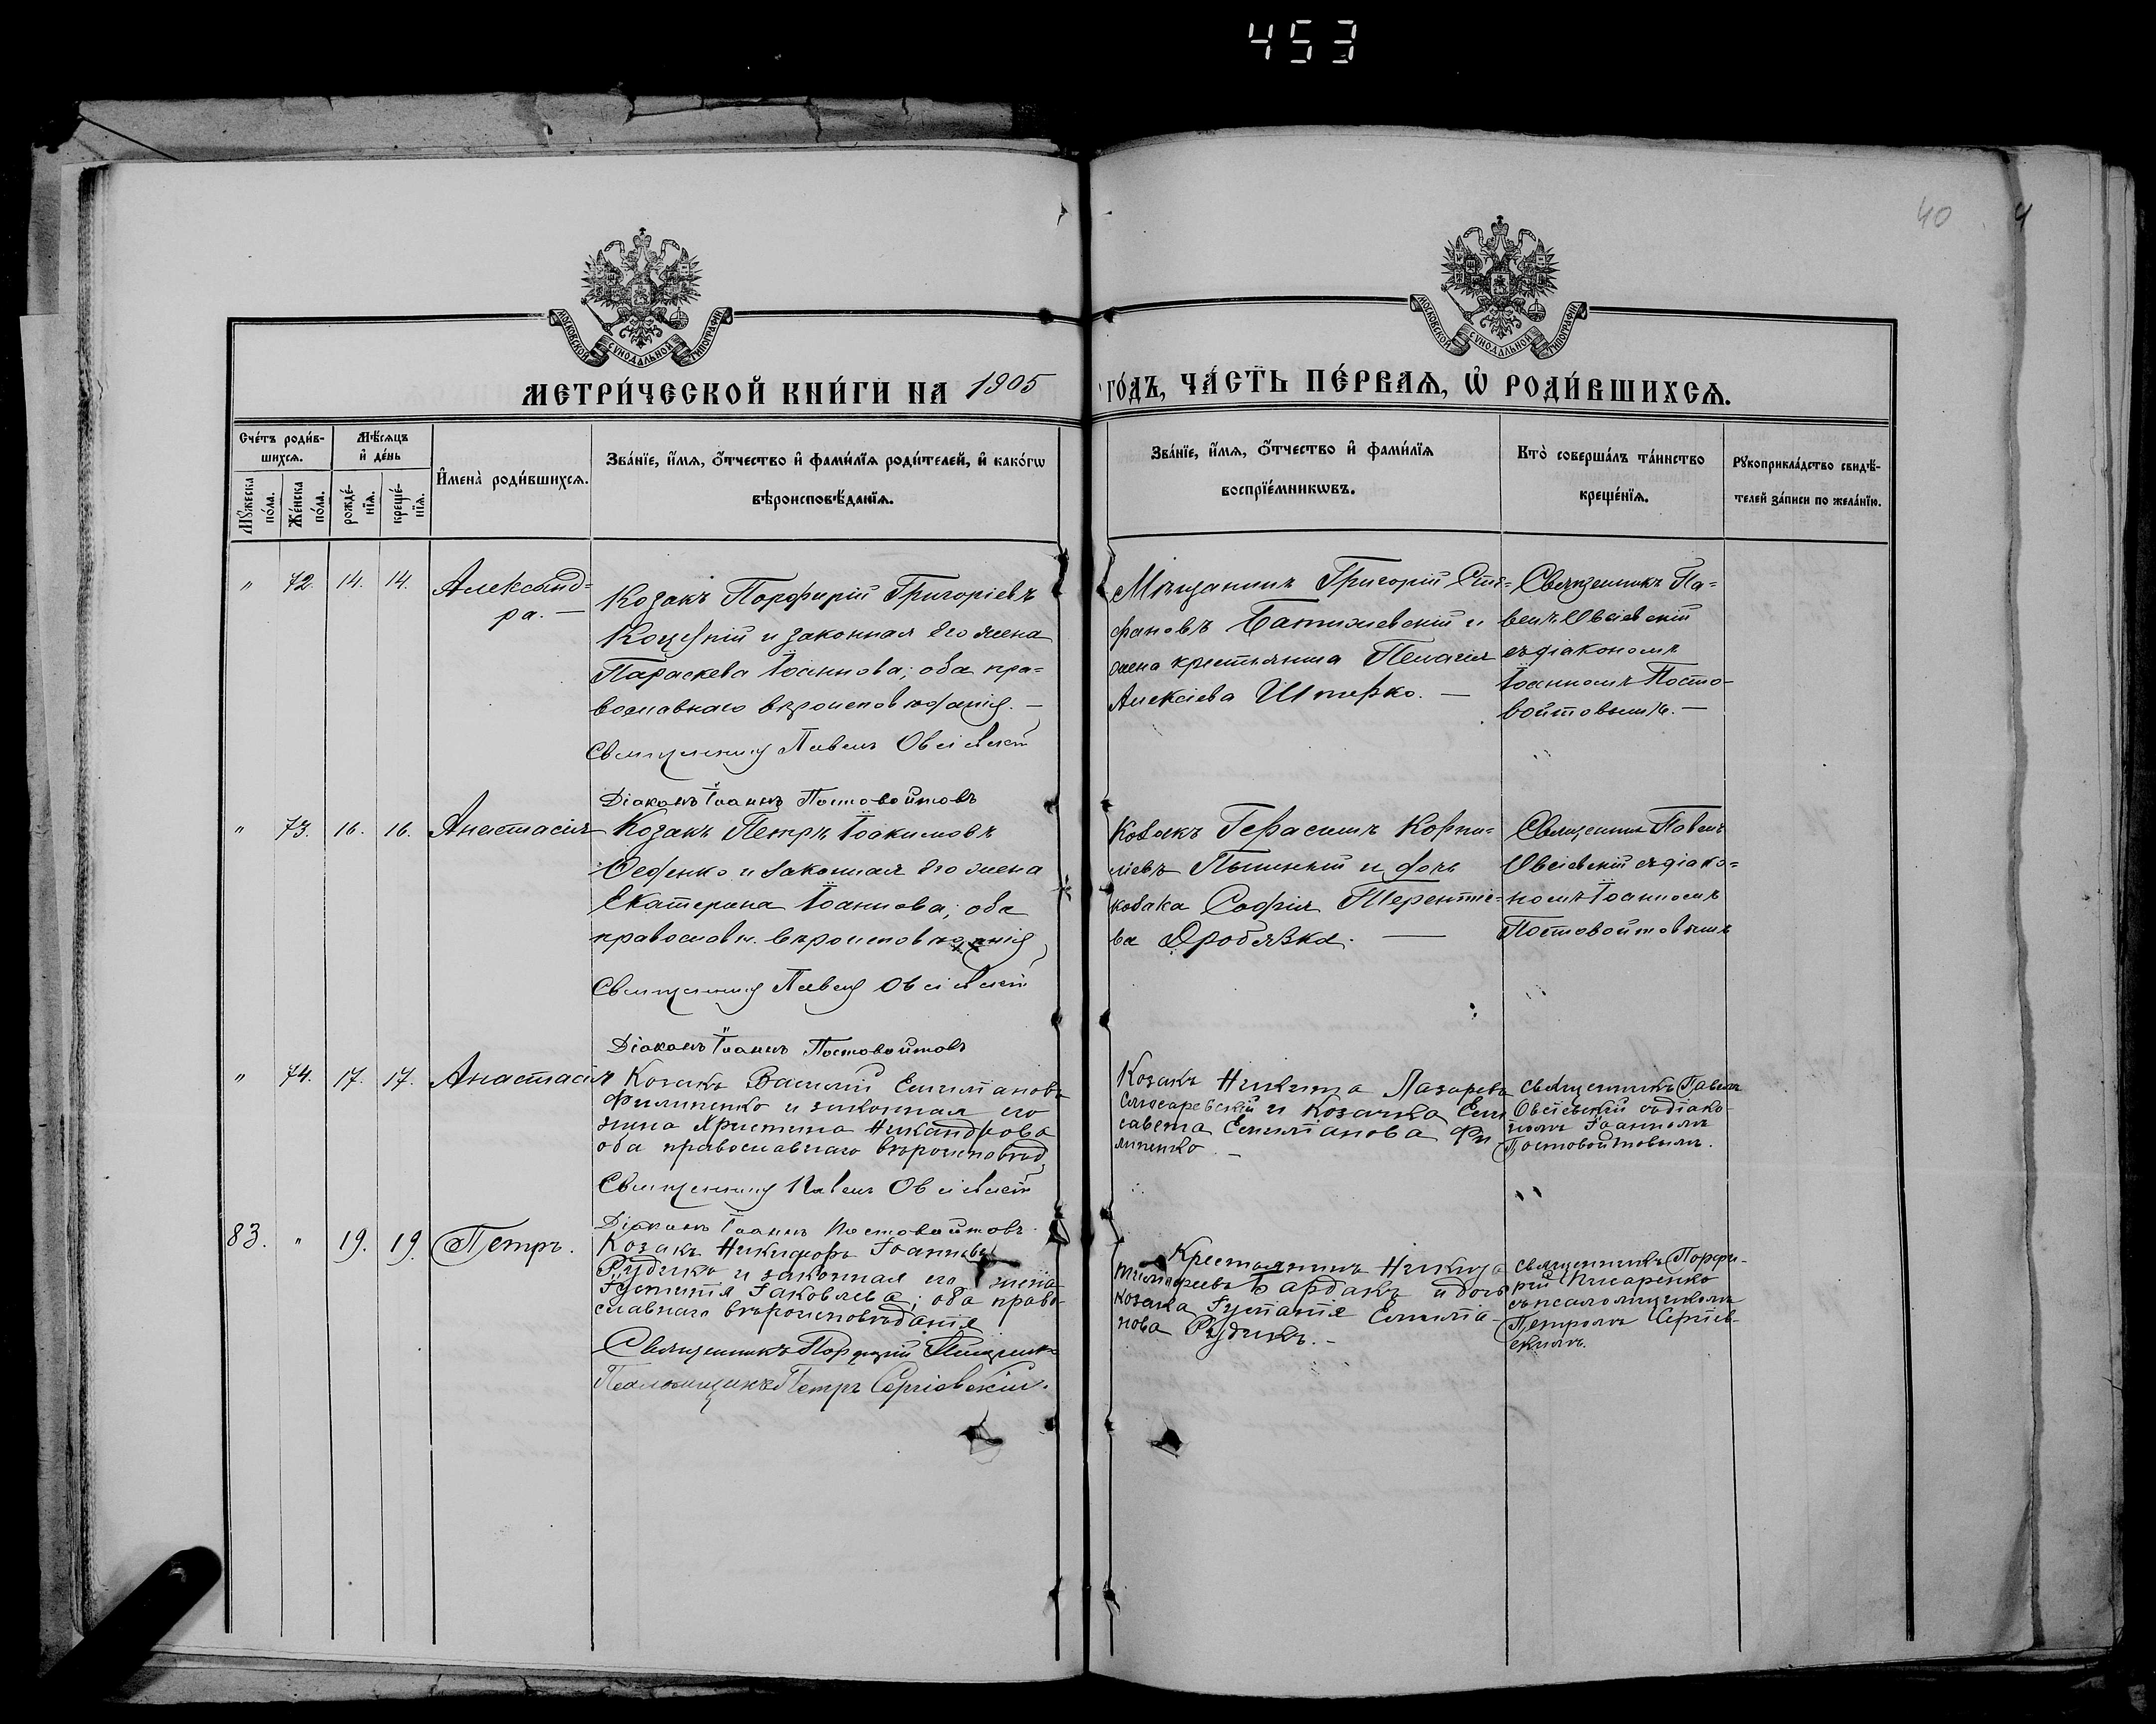 453
40
4
МОСКОВСКОЙ СѴНОДАЛЬНОЙ ТИПОГРАФІИ
МОСКОВСКОЙ СѴНОДАЛЬНОЙ ТИПОГРАФІИ
МЕТРИ́ЧЕСКОЙ КНИ́ГИ НА 1905
ГО́ДЪ, ЧА́СТЬ ПЕ́РВАѦ, Ѡ҆ РОДИ́ВШИХСѦ.
Сче́тъ роди́в-
шихсѧ.
Мѣ́сѧцъ
и҆ де́нь
Мꙋ́жеска по́ла.
Же́нска по́ла.
рожде́-
нїѧ.
креще́-
нїѧ.
И҆мена̀ роди́вшихсѧ.
Зва́нїе, и҆́мѧ, ѻ҆́тчество и҆ фами́лїѧ роди́телей, и҆ како́гѡ
вѣроисповѣ́данїѧ.
Зва́нїе, и҆́мѧ, ѻ҆́тчество и҆ фами́лїѧ
воспрїе́мникѡвъ.
Кто̀ соверша́лъ та́инство
креще́нїѧ.
Рꙋкоприкла́дство свидѣ́-
телей за́писи по жела́нїю.
" 72. 14. 14. Александ=
ра. —
Козакъ Порфирій Григоріевъ
и законная его жена
Параскева Іоаннова; оба пра=
вославнаго вѣроисповѣданія. —
Священникъ Павелъ Овсіевскій
Діаконъ Іоаннъ Постовойтовъ
Мѣщанинъ Григорій Сте=
фановъ и
жена крестьянина Пелагія
Алексіева Шперко. —
Священникъ Па=
велъ Овсіевскій
съ діакономъ
Іоанномъ Посто-
войтовымъ. —
" 73. 16. 16. Анастасія
Козакъ Петръ Іоакимовъ
и законная его жена
Екатерина Іоаннова; оба
православн. вѣроисповѣданія
Священникъ Павелъ Овсіевскій
Діаконъ Іоаннъ Постовойтовъ
Козакъ Герасимъ Корни=
ліевъ и дочь
козака Софія Терентіе=
ва Дробязка. —
Священникъ Павелъ
Овсіевскій съ діако=
номъ Іоанномъ
Постовойтовымъ
" 74. 17. 17. Анастасія
Козакъ Василій Емиліановъ
Филипенко и законная его
жена Христина Никандрова
оба православнаго вѣроисповѣд.
Священникъ Павелъ Овсіевскій
Діаконъ Іоаннъ Постовойтовъ.
Козакъ Никита Лазаревъ
Слюсаревскій и Козачка Ели
савета Емиліанова Фи-
липенко. —
Священникъ Павелъ
Овсіевскій съ діако-
номъ Іоанномъ
Постовойтовымъ.
83. " 19. 19. Петръ.
Козакъ Никифоръ Іоанновъ
Рудикъ и законная его жена
Іустинія Іаковлева; оба право-
славнаго вѣроисповѣданія
Священникъ Порфирій Писаренко
Псаломщикъ Петръ Сергіевскій.
Крестьянинъ Никита
Тимофеевъ Бардакъ и дочь
козака Емилiа-
нова Рудикъ. —
Священникъ Порфи-
рій Писаренко
съ псаломщикомъ
Петромъ Сергіев-
скимъ.